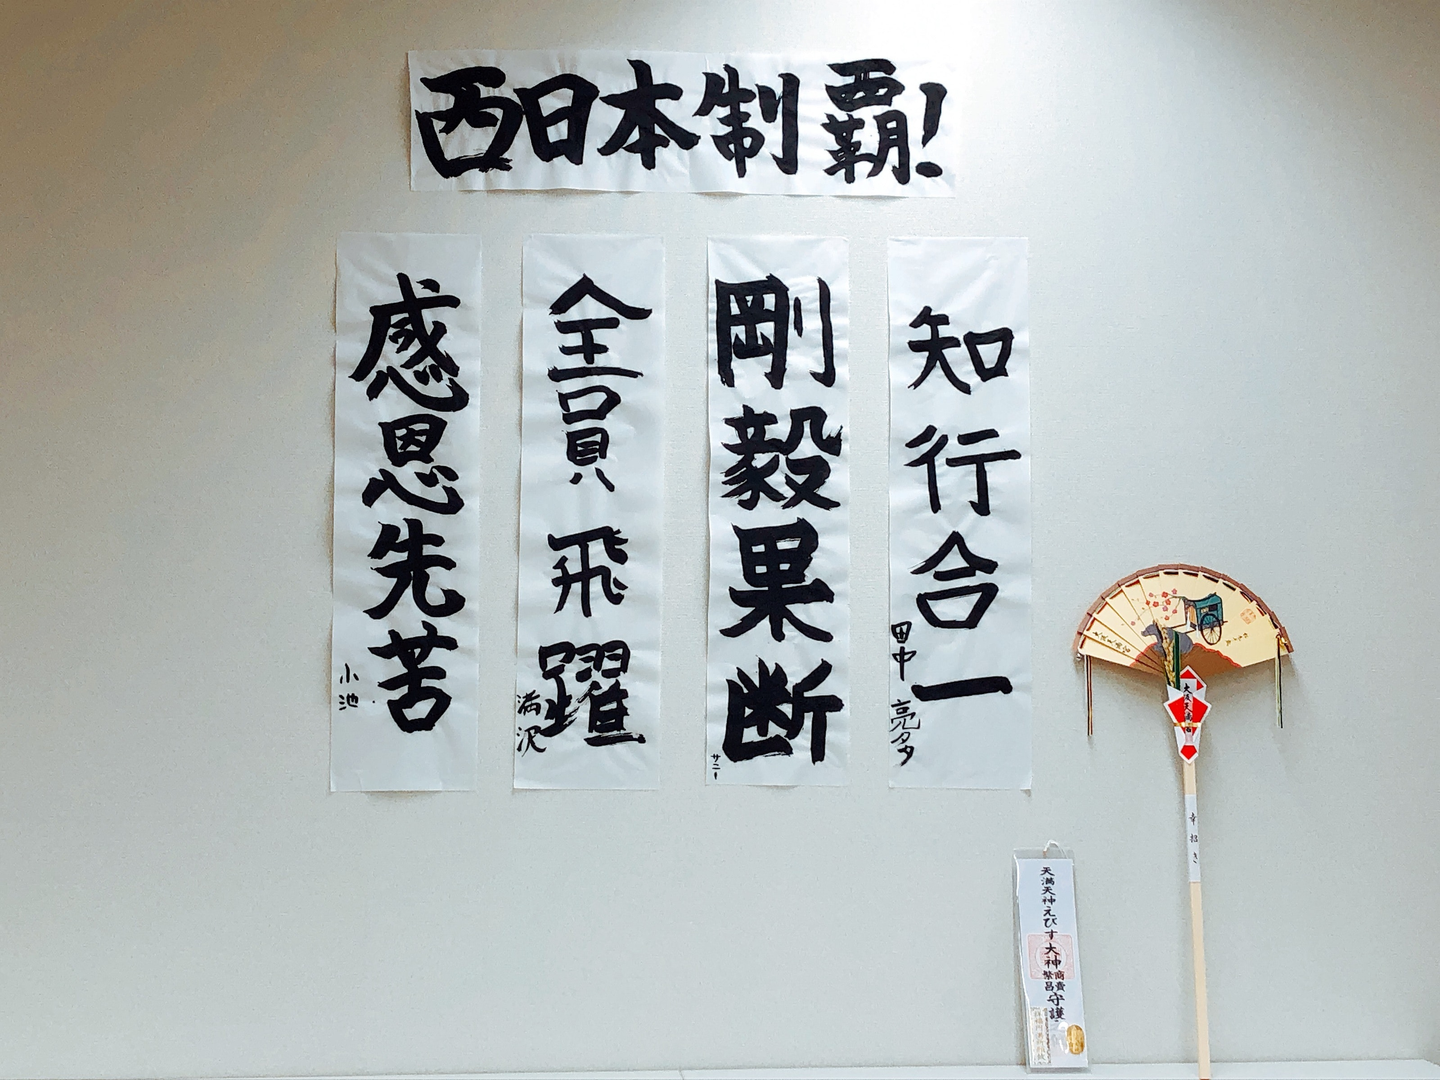 西日本制覇!
知行合一
田中 亮多
剛毅果断
サニー
全員飛躍
満沢
感恩先苦
小池
幸招き
天満天神えびす大神
商売繁昌守護